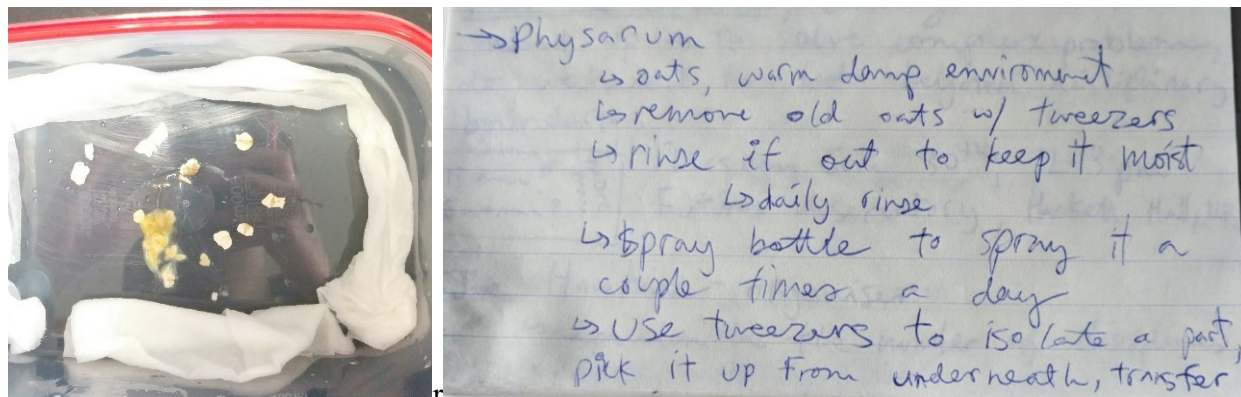 →Physarum
↳ oats, warm damp enviroment
↳ remove old oats w/ tweezers
↳ rinse it out to keep it moist
↳ daily rinse
↳ spray bottle to spray it a
couple times a day
↳ use tweezers to isolate a part,
pick it up from underneath, transfer
r